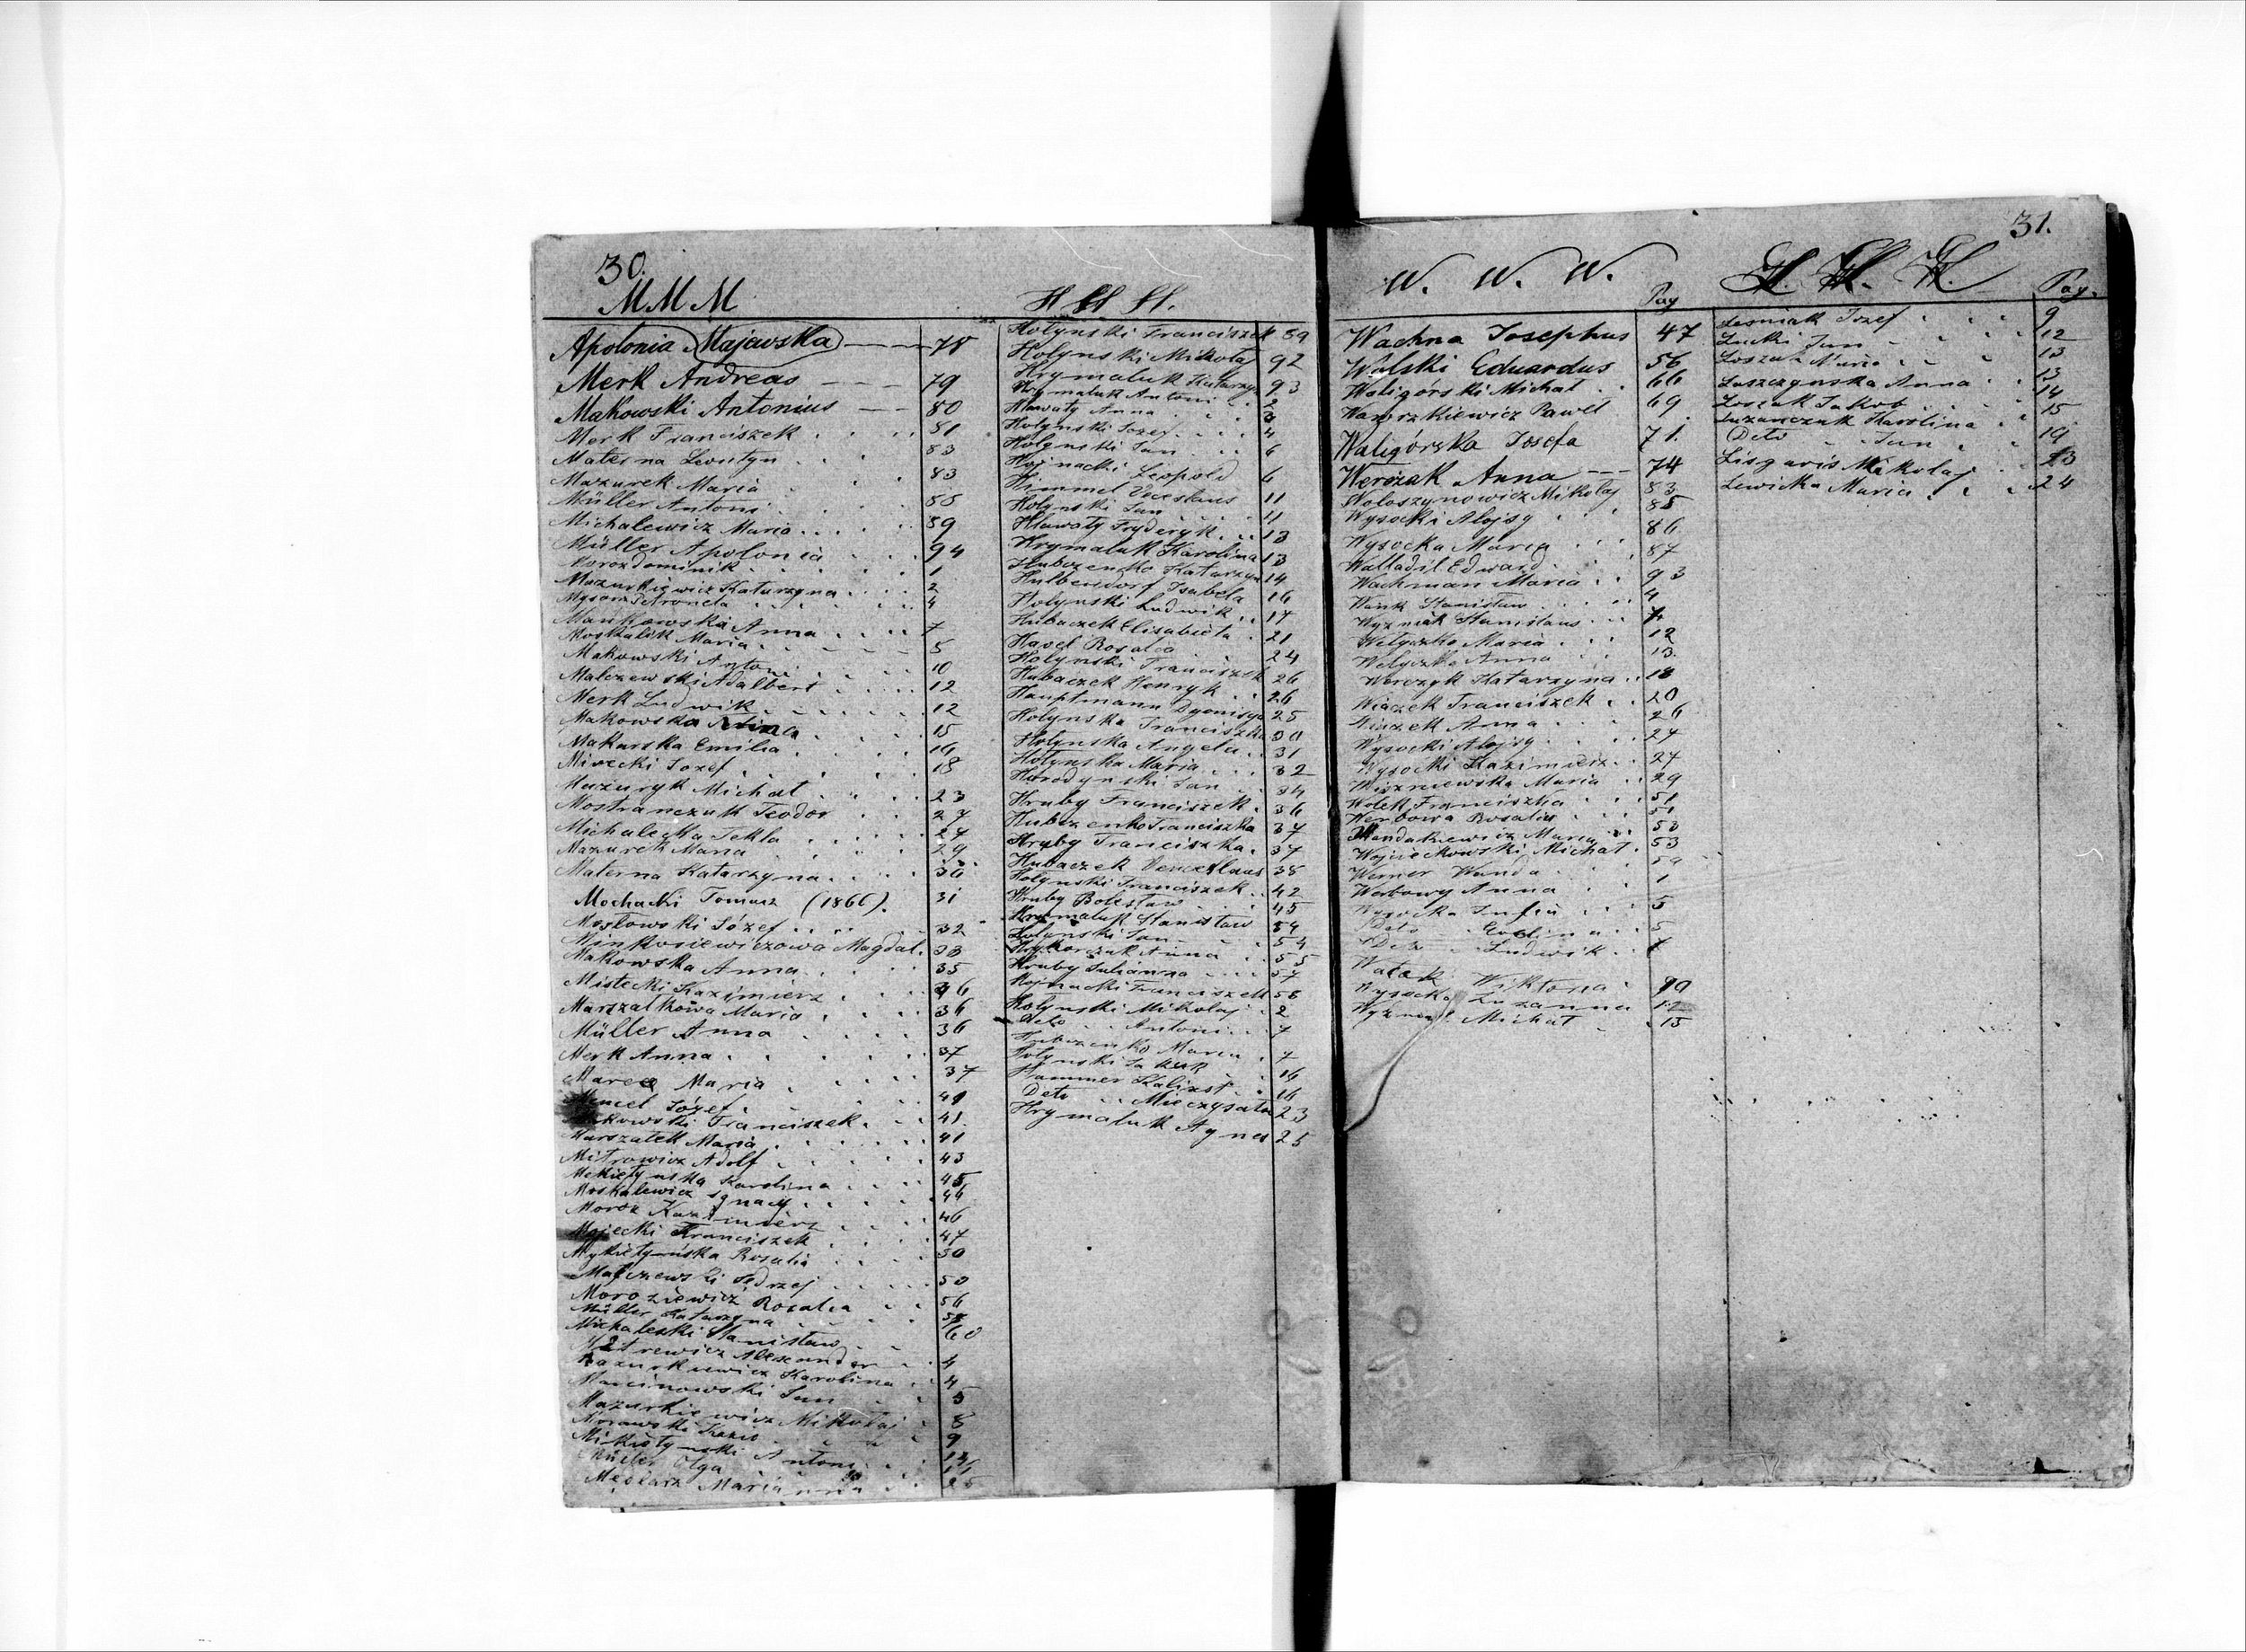 30.
M M M
Apolonia Majewska — 78
Merk Andreas — 79
Makowski Antonius — 80
Merk Franciszek . . . 81
Materna Leontyn . . . 83
Mazurek Maria . . . 83
Müller Antoni . . . 88
Michalewicz Maria . . . 89
Müller Apolonia . . . 94
Moroz Dominik . . . 1
Mazurkiewicz Katarzyna . . . 2
Petronela . . . 4
Mankowska Anna . . . 7
Moskalik Maria . . . 5
Makowski Antoni . . . 10
Malczewski Adalbert . . . 12
Merk Ludwik . . . 12
Makowska . . . 15
Makarska Emilia . . . 16
Mirecki Jozef . . . 18
Mazuryk Michał . . . 23
Mostranczuk Teodor . . . 27
Michalecka Tekla . . . 27
Mazurek Maria . . . 29
Materna Katarzyna . . . 30
Mochacki Tomasz (1866). 31
Masłowski Józef . . . 32
Minkosiewiczowa Magdal. 33
Makowska Anna . . . 35
Mistecki Kazimierz . . . 36
Marszałkowa Maria . . . 36
Müller Anna . . . 36
Merk Anna . . . 37
Maria . . . 37
Józef . . . 41
Makowski Franciszek . . . 41
Marszałek Maria . . . 41
Mitrowicz Adolf . . . 43
Mikietynska Karolina . . . 45
Moskalewicz Ignacy . . . 46
Moroz Kazimierz . . . 46
Majecki Franciszek . . . 47
Mykietyńska Rosalia . . . 50
Malczewski Jędrzej . . . 50
Moroziewicz Rosalia . . . 56
Müller Katarzyna . . . 58
Michaleski Stanisław . . . 60
Mitrewicz Alexander . . . 4
Mazurkiewicz Karolina . . . 4
Marcinowski Jan . . . 5
Mazurkiewicz Mikołaj . . . 8
Morawski . . . 9
Mikietynski Antoni . . .
Müller Olga . . .
Marianna . . . 25
H H H.
Hołynski Franciszek 89
Hołynski Mikołaj 92
Hrymaluk Katarzyn 93
Hrymaluk Antoni . . 2
Hławaty Anna . . . 3
Hołynski Jozef . . . 4
Hołynski Jan . . . 6
Hojnacki Leopold 6
Himmel Venceslaus 11
Hołynski Jan . . . 11
Hławaty Fryderyk . . 13
Hrymaluk Karolina 13
Hubczenko Katarzyn 14
Hulbendorf Isabela 16
Hołynski Ludwik . . 17
Hubaczek Elisabieta . 21
Havel Rosalia . . 24
Hołynski Franciszek 26
Hubaczek Henryk . . 26
Hauptmann Dyonisya 25
Hołynska Franciszka 30
Hołynska Angela . . 31
Hołynska Maria . . . 32
Horodynski Jan . . 34
Hruby Franciszek . 36
Hubczenko Franciszka 37
Hruby Franciszka . 37
Hubaczek Venceslaus 38
Hołynski Franciszek . . 42
Hruby Bolesław . . . 45
Hrymaluk Stanisław 54
Hołynski Jan . . 54
Anna . . 55
Hruby Julianna . . . 57
Hojnacki Franciszek 58
Hołynski Mikołaj . 2
Deto . . Antoni . . 7
Hubczenko Maria . 7
Hołynski Jakub . 16
Hammer Kalixst . 16
Deto . . Mieczysław 23
Hrymaluk Agnes 25
31.
W. W. W.
Pag
Wachna Josephus 47
Wolski Eduardus 56
Waligórski Michał . . 66
Wawrzkiewicz Paweł 69
Waligórska Josefa 71.
Werezak Anna — 74
Wołoszynowicz Mikołaj 83
Wysocki Alojzy . . . 85
Wysocka Maria . . . 86
Walladil Edward . . . 87
Wachman Maria . . . 93
Wank Stanisław . . . 4
Wyzniak Stanislaus . . . 7
Wełyczko Maria . . . 12
Wełyczko Anna . . . 13
Werczyk Katarzyna . . 18
Wiazek Franciszek . . 20
Wiazek Anna . . . 26
Wysocki Alojzy . . . 27
Wysocki Kazimierz . . 27
Wiszniewska Maria . . 29
Wołek Franciszka . . . 51
Werbowa Rosalia . . . 51
Maria . . 53
Wojciechowski Michał . 53
Werner Wanda . . . 59
Werbowy Anna . . . 1
Wysocka Jusfin . . . 5
Deto . . Ewelina . . . 5
Deto . . Ludwik . . .
Wiktoria . 10
Wysocka Zuzanna 12
Michał . . 15
Ł. Ł. Ł.
Pag.
Lesniak Jozef . . . 9
Łucki Jan . . . 12
Łoszuk Maria . . . 13
Łaszczynska Anna . . 13
Łoszuk Jakob . . . 14
Łuzanczuk Karolina . . 15
Deto . . Jan . . 19
Lisgaris Mikołaj . . 23
Lewicka Maria . . . 24